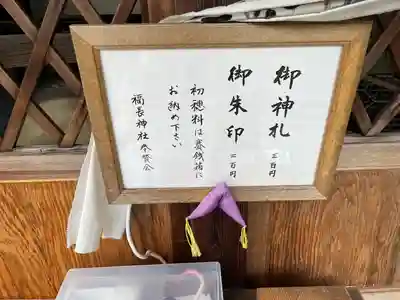 御神札 三百円
御朱印 三百円
初穂料は賽銭箱に
お納め下さい
福長神社奉賛会